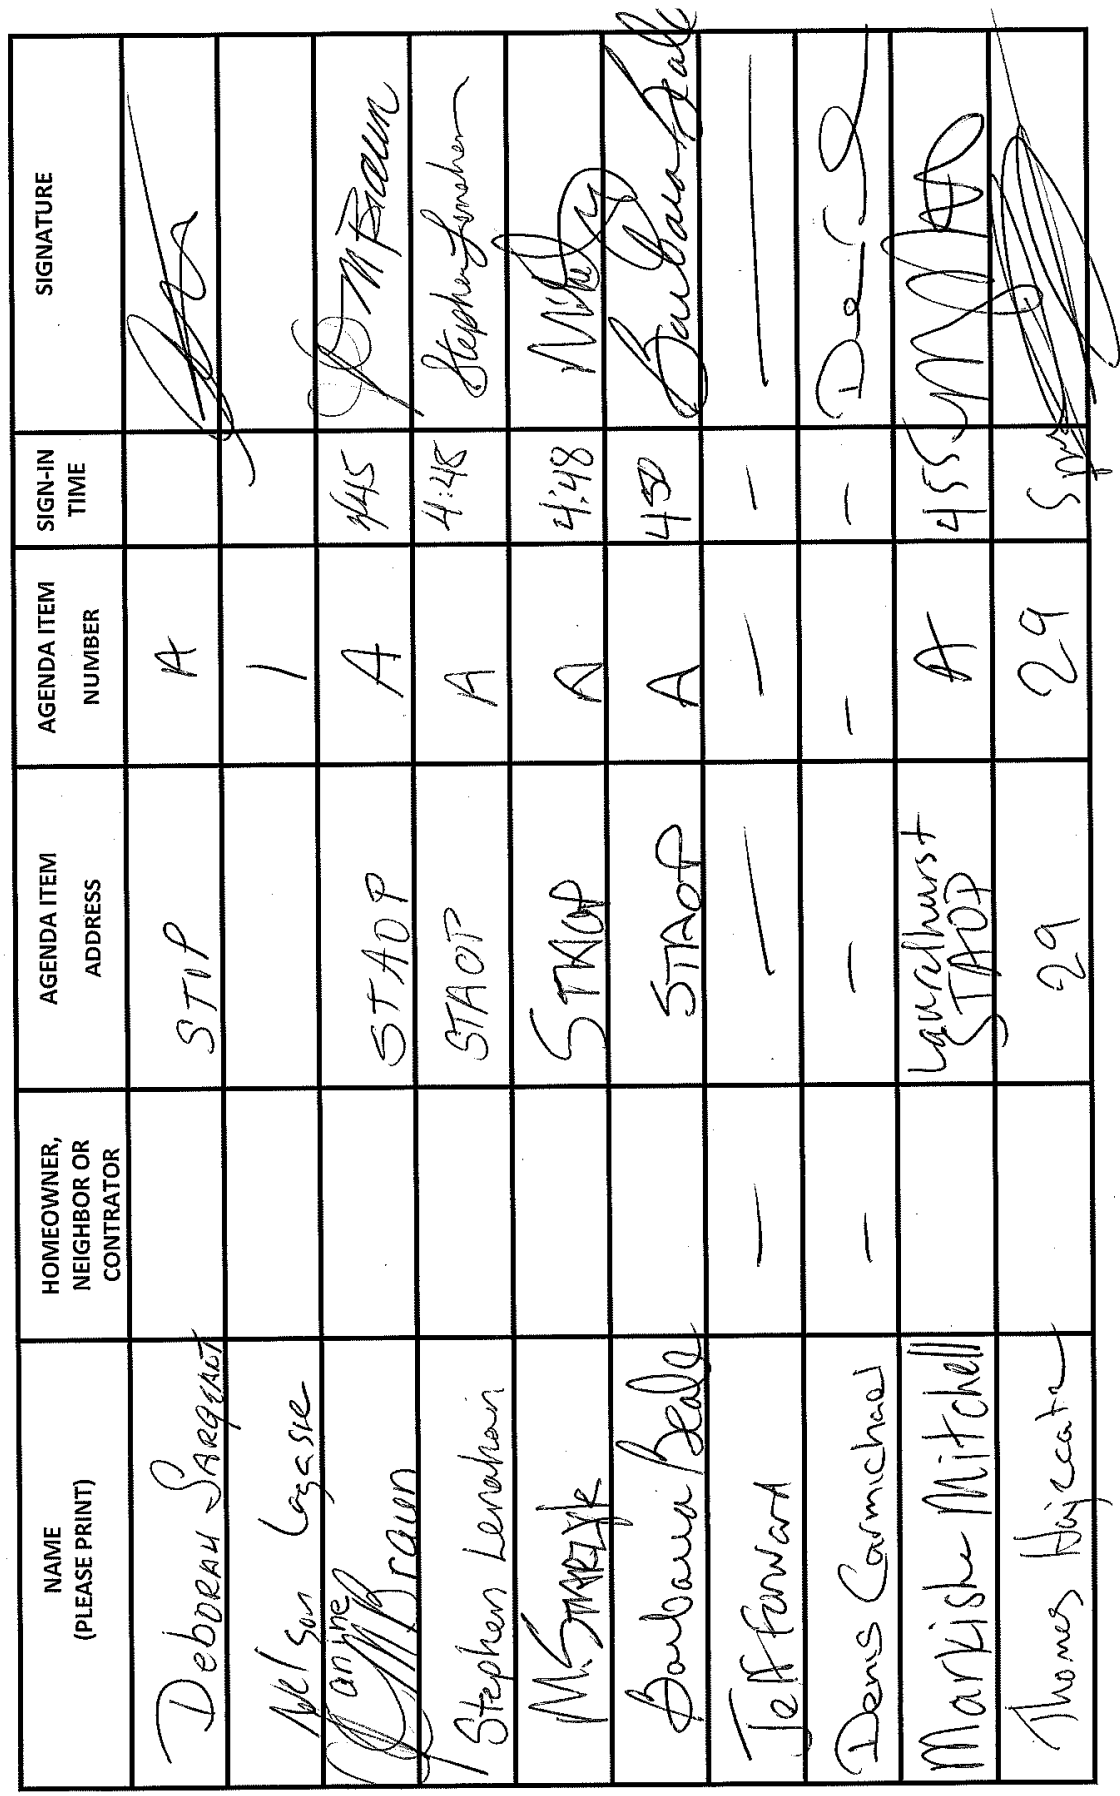 NAME (PLEASE PRINT) HOMEOWNER, NEIGHBOR OR CONTRATOR AGENDA ITEM ADDRESS AGENDA ITEM NUMBER SIGN-IN TIME SIGNATURE
DEBORAH SARGEANT STOP A
Nelson Lagasse 1
Janine M Braun STAOP A 445 J M Braun
Stephen Lenahan STAOP A 4:45 Stephen Lenahan
M. STARZYK STAOP A 4:48
Barbara Beale STAOP A 450 Barbara Beale
Jeff Forward — — — — —
Denis Carmichael — — —
Markishe Mitchell Lauralhurst STAOP A 455
Thomas 29 29 5pm